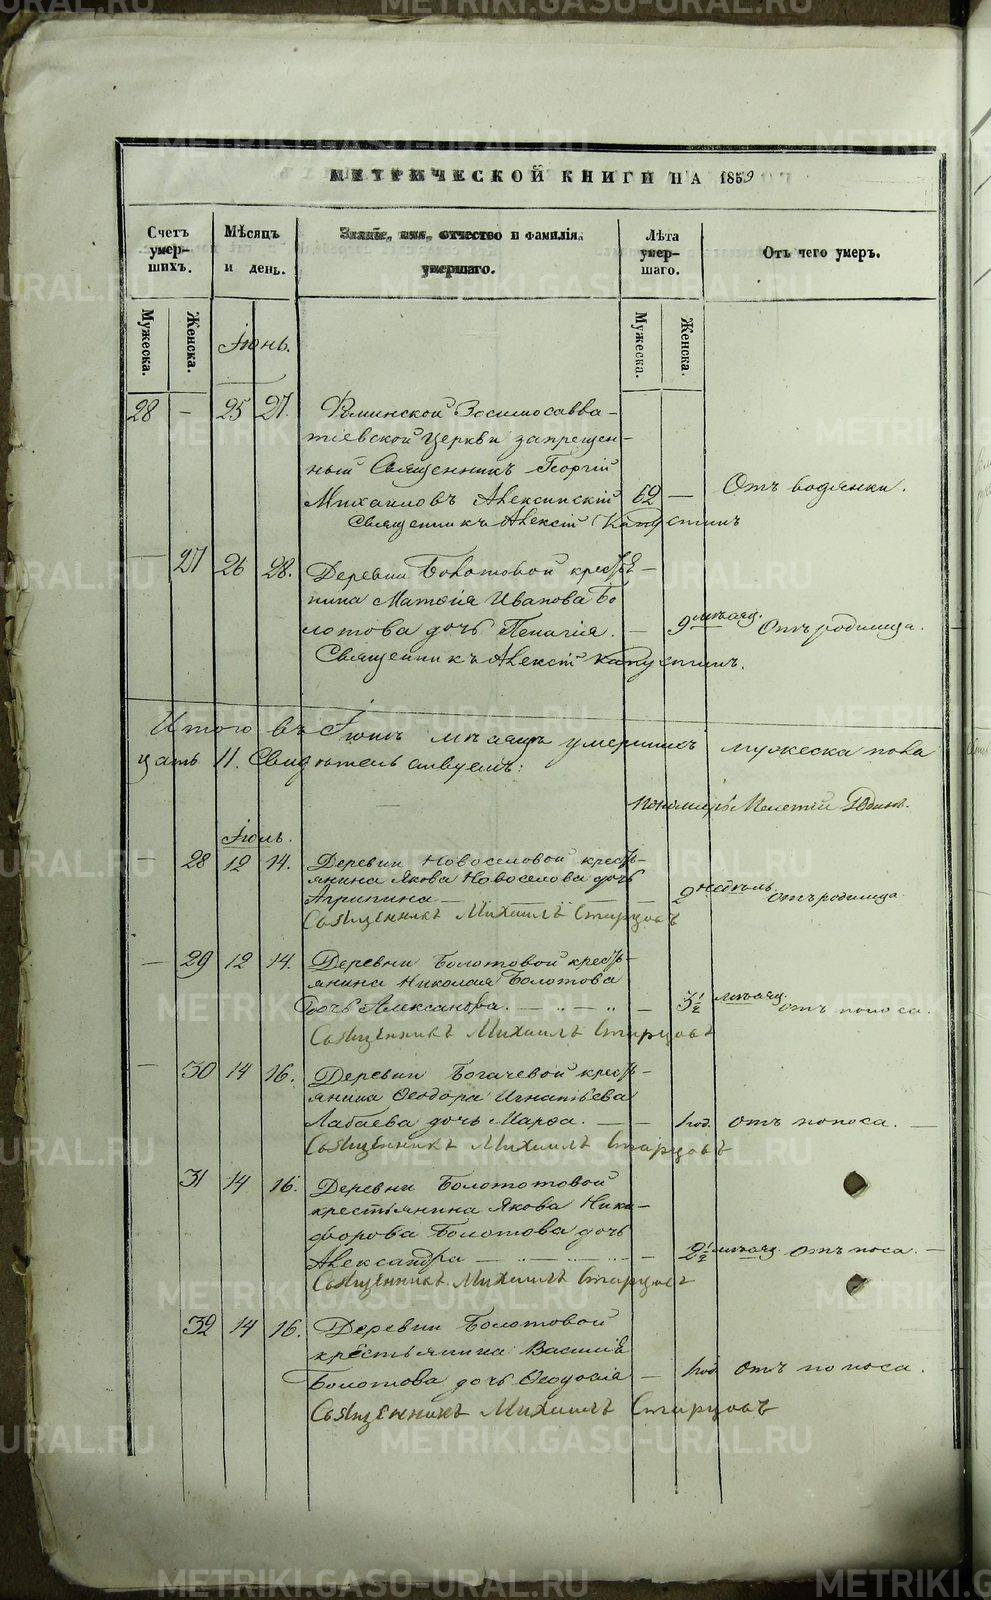 МЕТРИЧЕСКОЙ КНИГИ НА 1859
Счетъ умер-шихъ.
Мѣсяцъ и день.
Званіе, имя, отчество и фамилія умершаго.
Лѣта умер-шаго.
Отъ чего умеръ.
Мужеска.
Женска.
Мужеска.
Женска.
Іюнь.
28 – 25 27.
Зосимосавва-
тіевской Церкви запрещен-
ный Священникъ Георгій
Михаиловъ Алексинскій 62 — Отъ водянки.
Священникъ Алексій Капустинъ
— 27 26 28. Деревни Болотовой кресть-
нина Матѳія Иванова Бо
лотова дочь Пелагія. — 9 мѣсяц. Отъ родимца.
Священникъ Алексій Капустинъ.
Итого въ Іюнѣ мѣсяцѣ умершихъ мужеска пола
11. Свидѣтельствуемъ:
Пономарь Мелетій
Іюль.
— 28 12 14. Деревни Новоселовой кресть-
янина Якова Новоселова дочь
Агрипина — 2 недѣль отъ родимца.
Священникъ Михаилъ Старцовъ
— 29 12 14. Деревни Болотовой кресть-
янина Николая Болотова
дочь Александра. — 3½ мѣсяц. отъ поноса.
Священникъ Михаилъ Старцовъ
— 30 14 16. Деревни Богачевой кресть-
янина Ѳеодора Игнатьева
Лабаева дочь Марѳа. — 1 год. отъ поноса. —
Священникъ Михаилъ Старцовъ
31 14 16. Деревни Болототовой
крестьянина Якова Ники-
форова Болотова дочь
Александра — 2½ мѣсяц. отъ носа. —
Священникъ Михаилъ Старцовъ
32 14 16. Деревни Болотовой
крестьянина Василія
Болотова дочь Ѳеодосія — 1 год отъ поноса.
Священникъ Михаилъ Старцовъ
METRIKI.GASO-URAL.RU